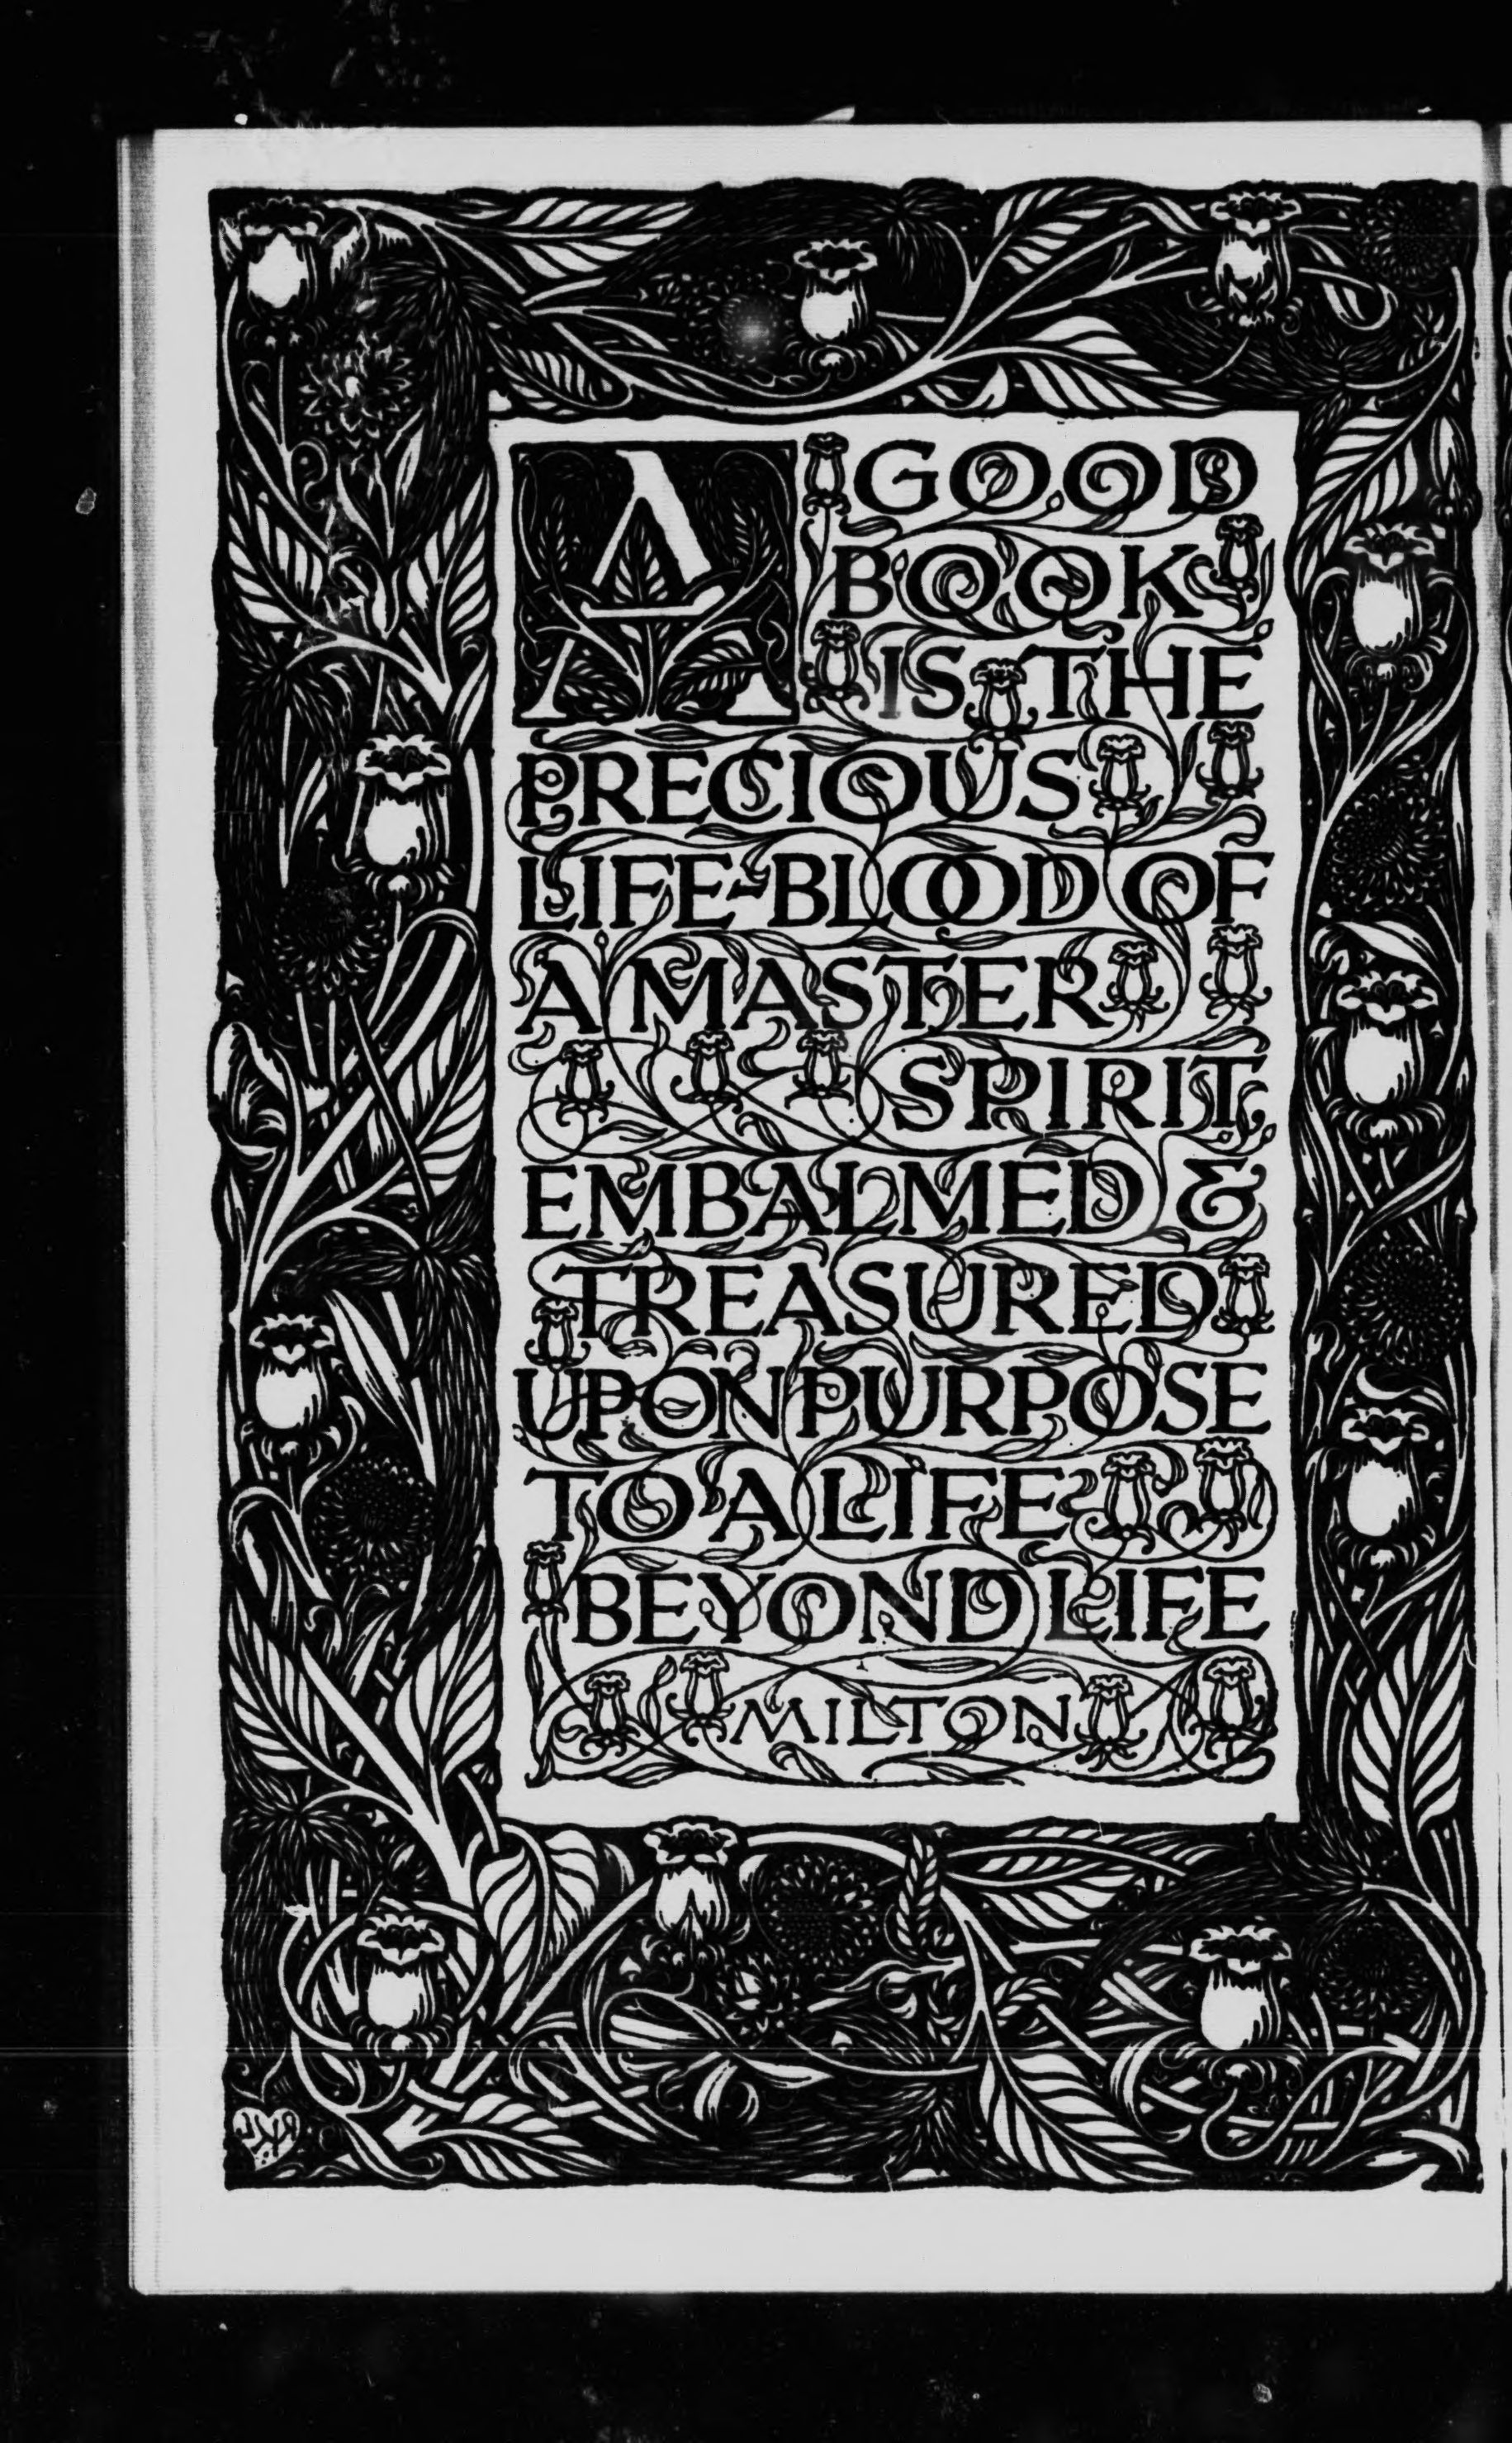 A GOOD
BOOK
IS THE
PRECIOUS
LIFE-BLOOD OF
A MASTER
SPIRIT
EMBALMED &
TREASURED
UPON PURPOSE
TO A LIFE
BEYOND LIFE
MILTON